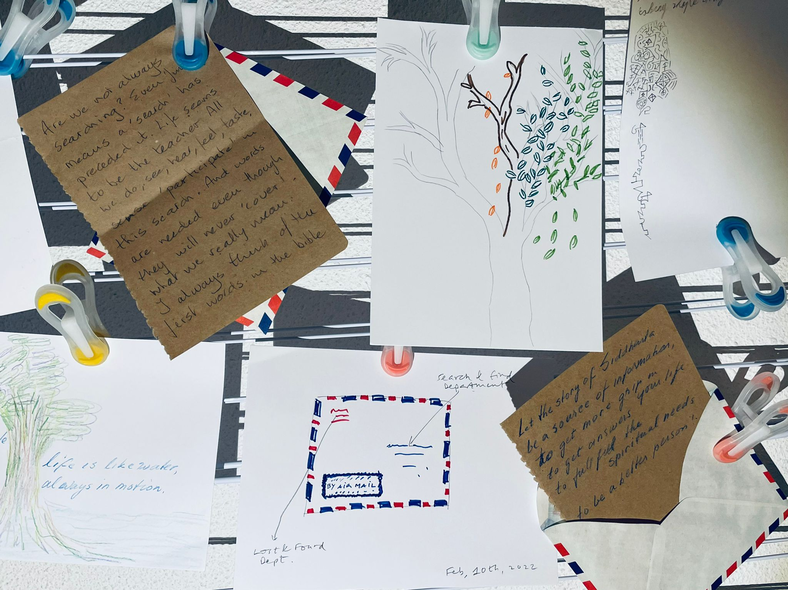 Are we not always
searching? Even just
means a search has
preceded it. Life seems
to be the teacher. All
we do, see, hear, feel, taste,
this search. And words
are needed even though
they will never 'cover'
what we really mean.
I always think of the
first words in the bible
life is like water,
always in motion.
search & find
Department
BY AIR MAIL
Lost & Found
Dept.
Feb, 10th, 2022
Let the story of Siddharta
be a source of information,
to get more grip in
to get answers your life
to full feel the
spiritual needs
to be a better person!